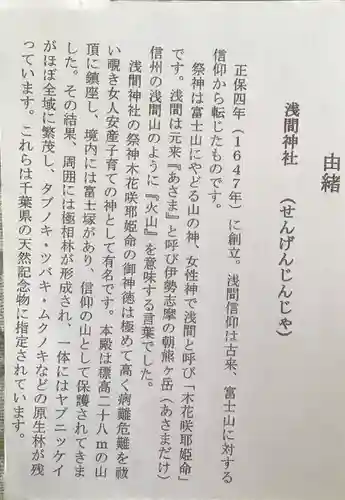 由緒
浅間神社　（せんげんじんじゃ）
正保四年（1647年）に創立。浅間信仰は古来、富士山に対する
信仰から転じたものです。
祭神は富士山にやどる山の神、女性神で浅間と呼び「木花咲耶姫命」
です。浅間は元来『あさま』と呼び伊勢志摩の朝熊ヶ岳（あさまだけ）
信州の浅間山のように『火山』を意味する言葉でした。
浅間神社の祭神木花咲耶姫命の御神徳は極めて高く病難危難を祓
い覗き女人安産子育ての神として有名です。本殿は標高二十八ｍの山
頂に鎮座し、境内には富士塚があり、信仰の山として保護されてきま
した。その結果、周囲には極相林が形成され、一体にはヤブニッケイ
がほぼ全域に繁茂し、タブノキ・ツバキ・ムクノキなどの原生林が残
っています。これらは千葉県の天然記念物に指定されています。